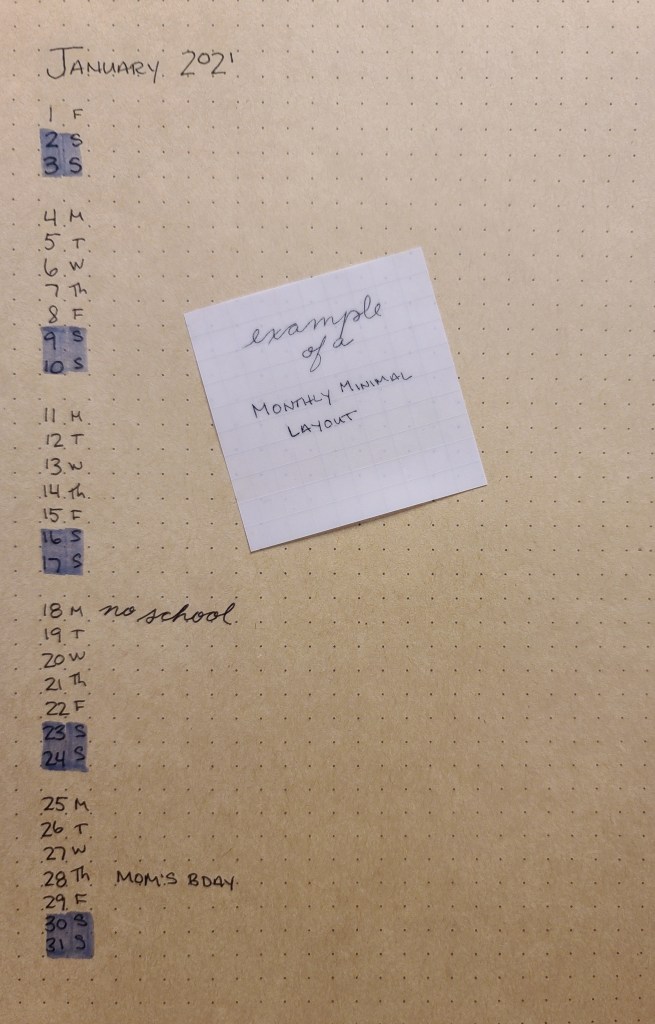 JANUARY 2021
1 F
2 S
3 S
4 M
5 T
6 W
7 Th
8 F
9 S
10 S
example
of a
MONTHLY MINIMAL
LAYOUT
11 M
12 T
13 W
14 Th
15 F
16 S
17 S
18 M no school
19 T
20 W
21 Th
22 F
23 S
24 S
25 M
26 T
27 W
28 Th MOM'S BDAY
29 F
30 S
31 S